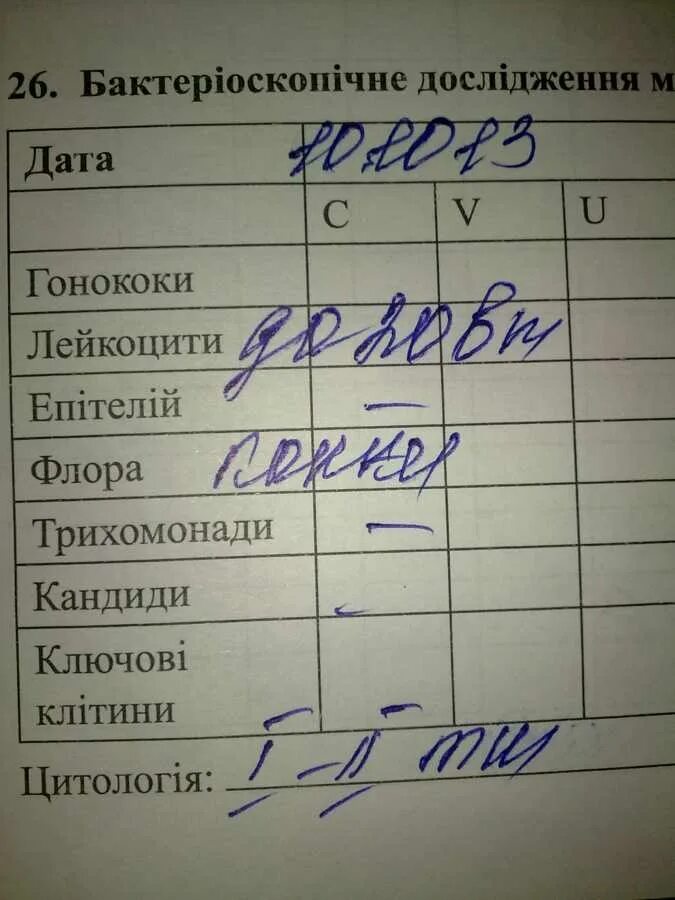 26. Бактеріоскопічне дослідження м
Дата 10.10.13
C V U
Гонококи
Лейкоцити до 20 в п
Епітелій –
Флора палички
Трихомонади –
Кандиди -
Ключові
клітини
Цитологія: I-II тип